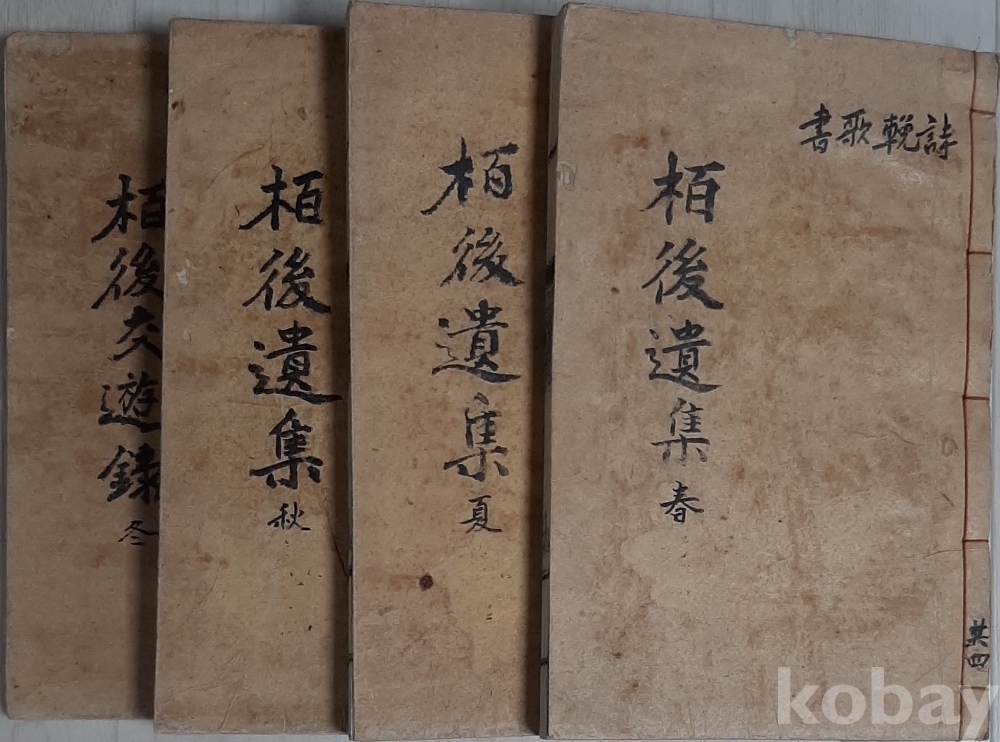 詩輓歌書
栢後遺集 春
共四
栢後遺集 夏
栢後遺集 秋
栢後交遊錄 冬
kobay